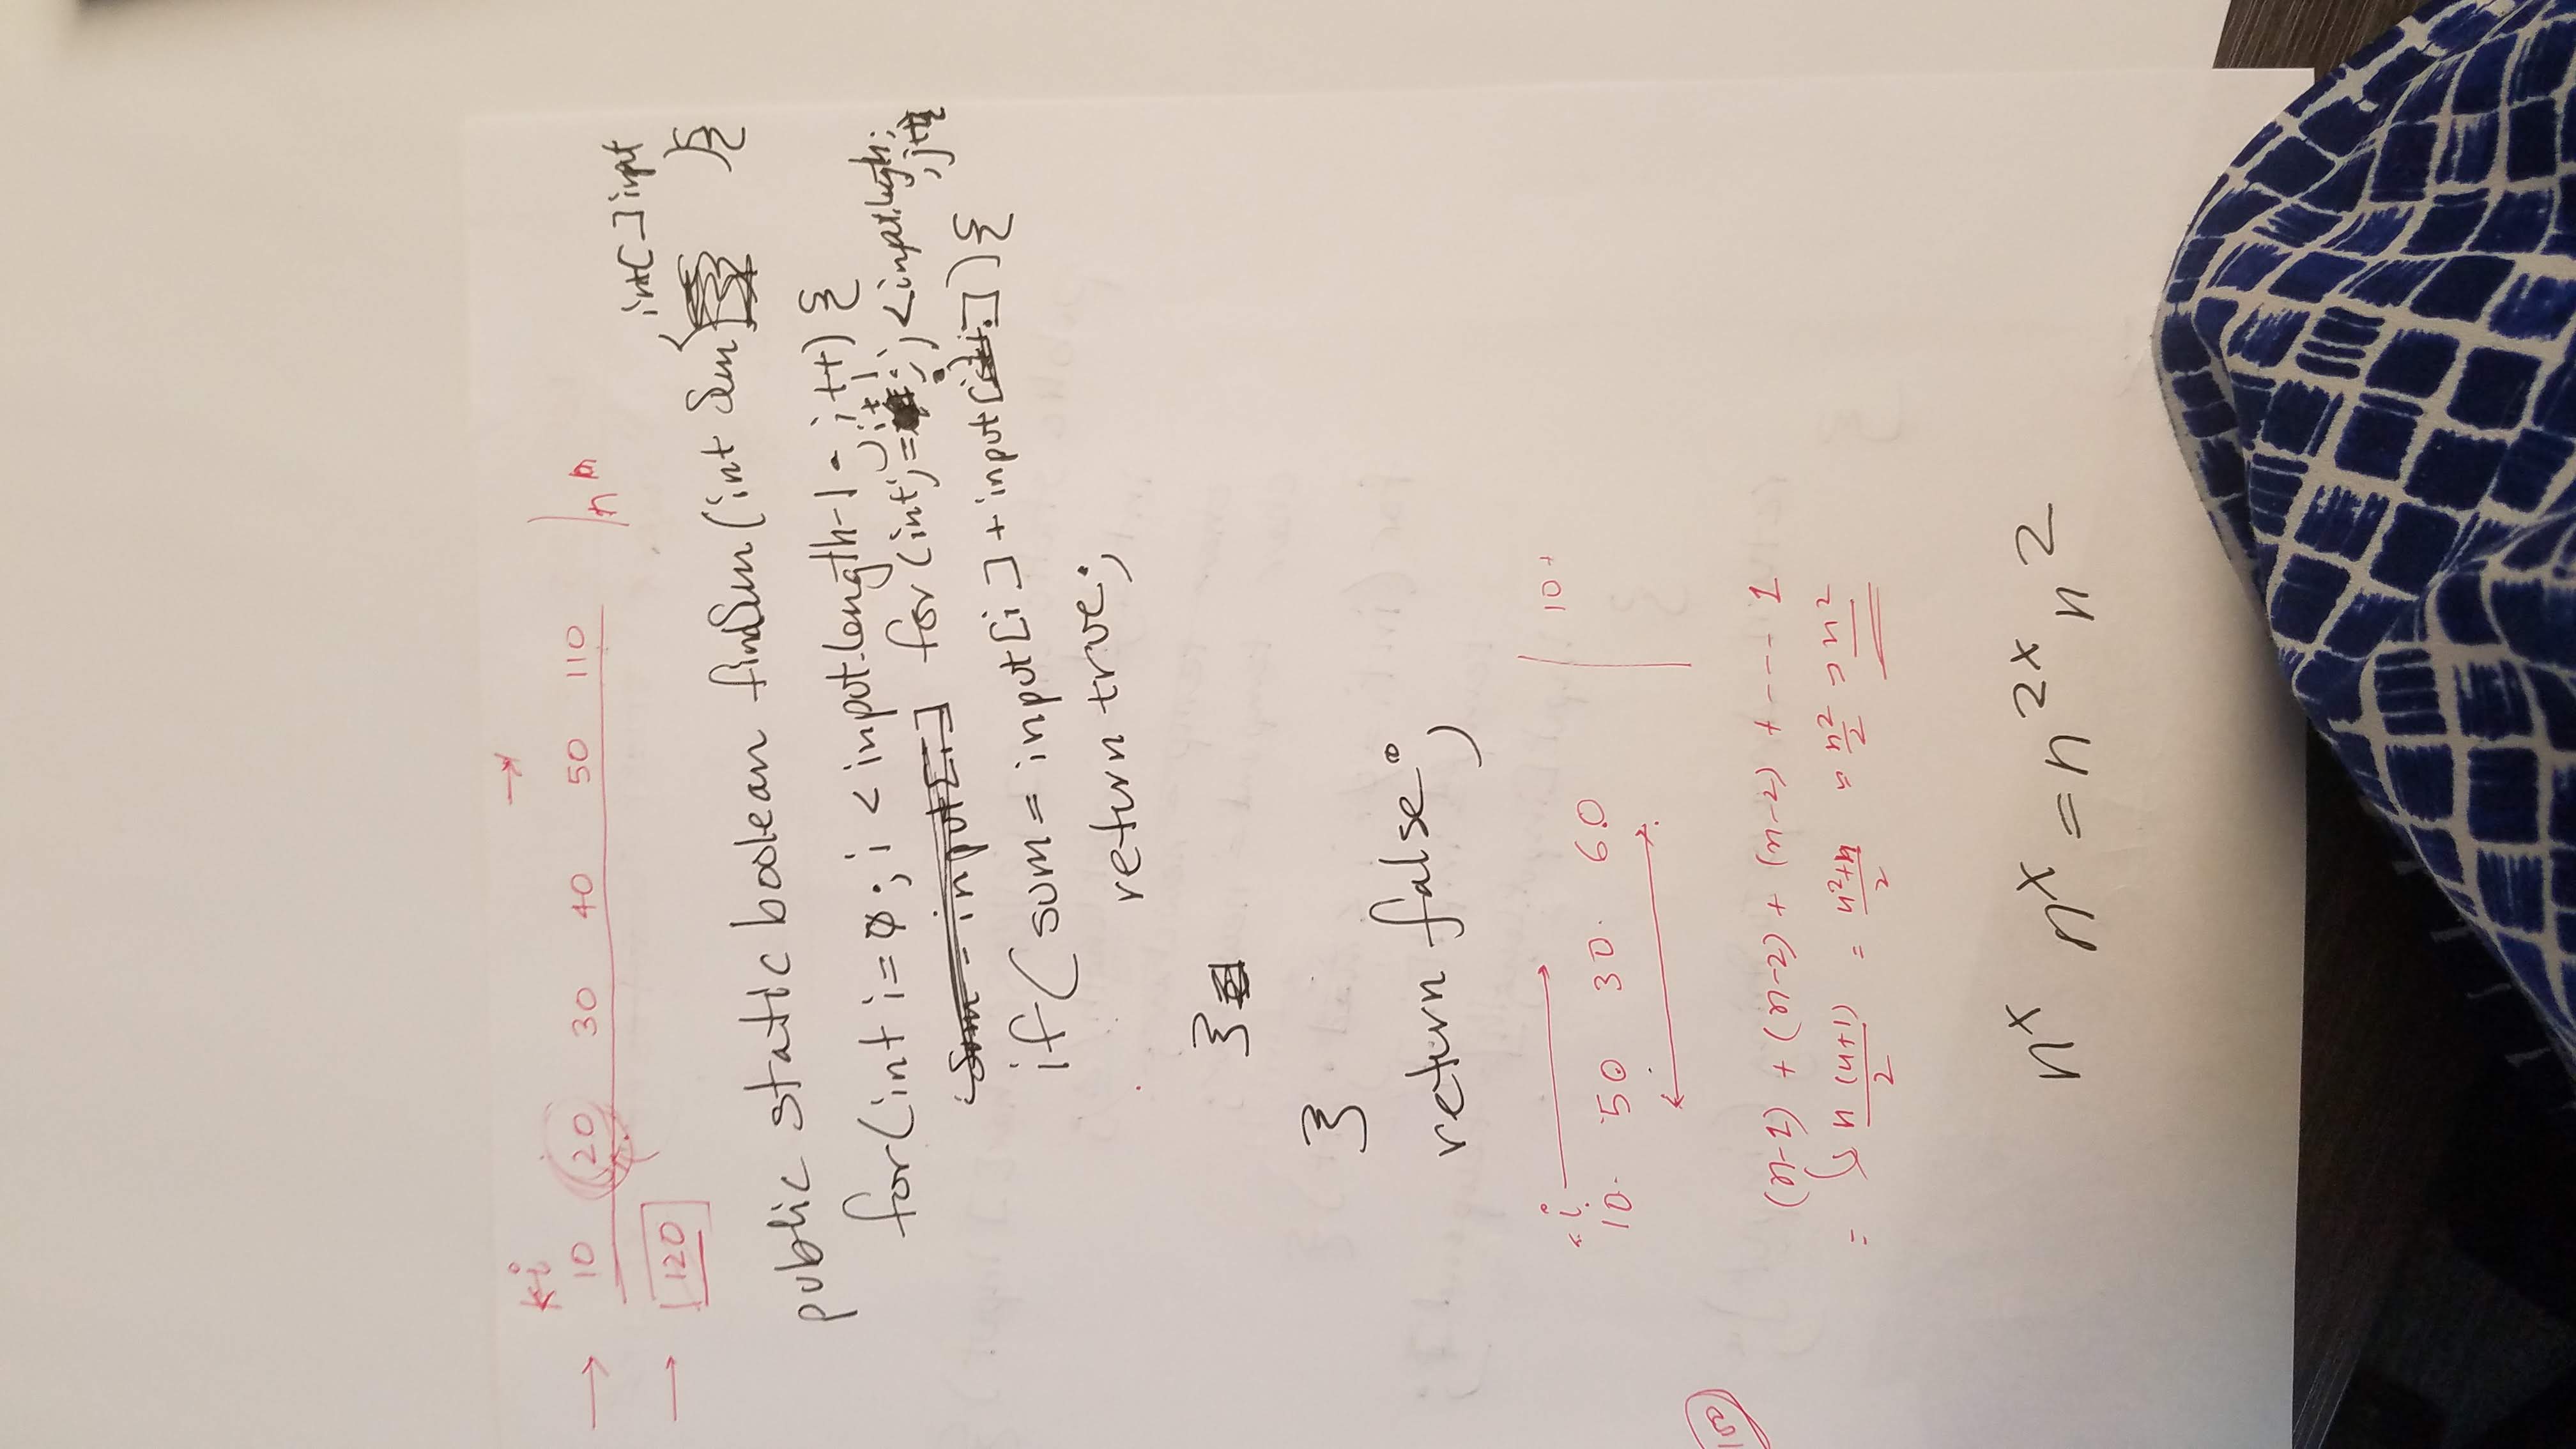 ki →
→ 10 20 30 40 50 110 n n
→ 120
int[] input
public static boolean findSum(int Sum, ){
for(int i=0; i < input.length-1 ; i++) {
i+1
for (int j= ; j <input.length;
j++{
if( sum = input[i] + input[j]){
return true;
}
}
return false;
i →
10 50 30 60 10 +
100
(n-1) + (n-2) + (n-2) + --- 1
= n(n+1)/2 = n²+n/2 = n²/2 = n²
nˣ nˣ = n²ˣ n²